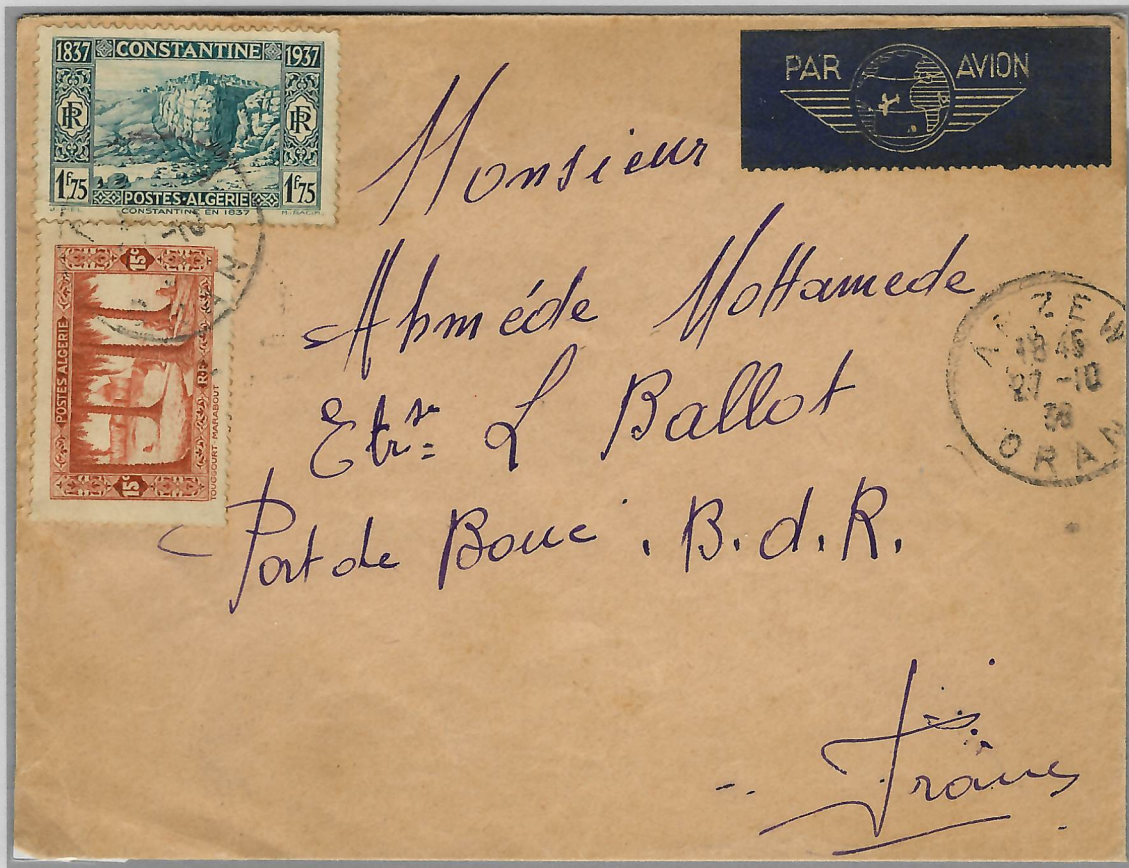 1837 CONSTANTINE 1937
RF RF
1F75 POSTES·ALGERIE 1F75
CONSTANTINE EN 1837
PAR AVION
15c
POSTES ALGERIE
RF
15c
TOUGGOURT-MARABOUT
Monsieur
Ahméde Mottamede
Etse L Ballot
Port de Bouc. B.d.R.
France
ARZEW
18 45
27-10
38
ORAN